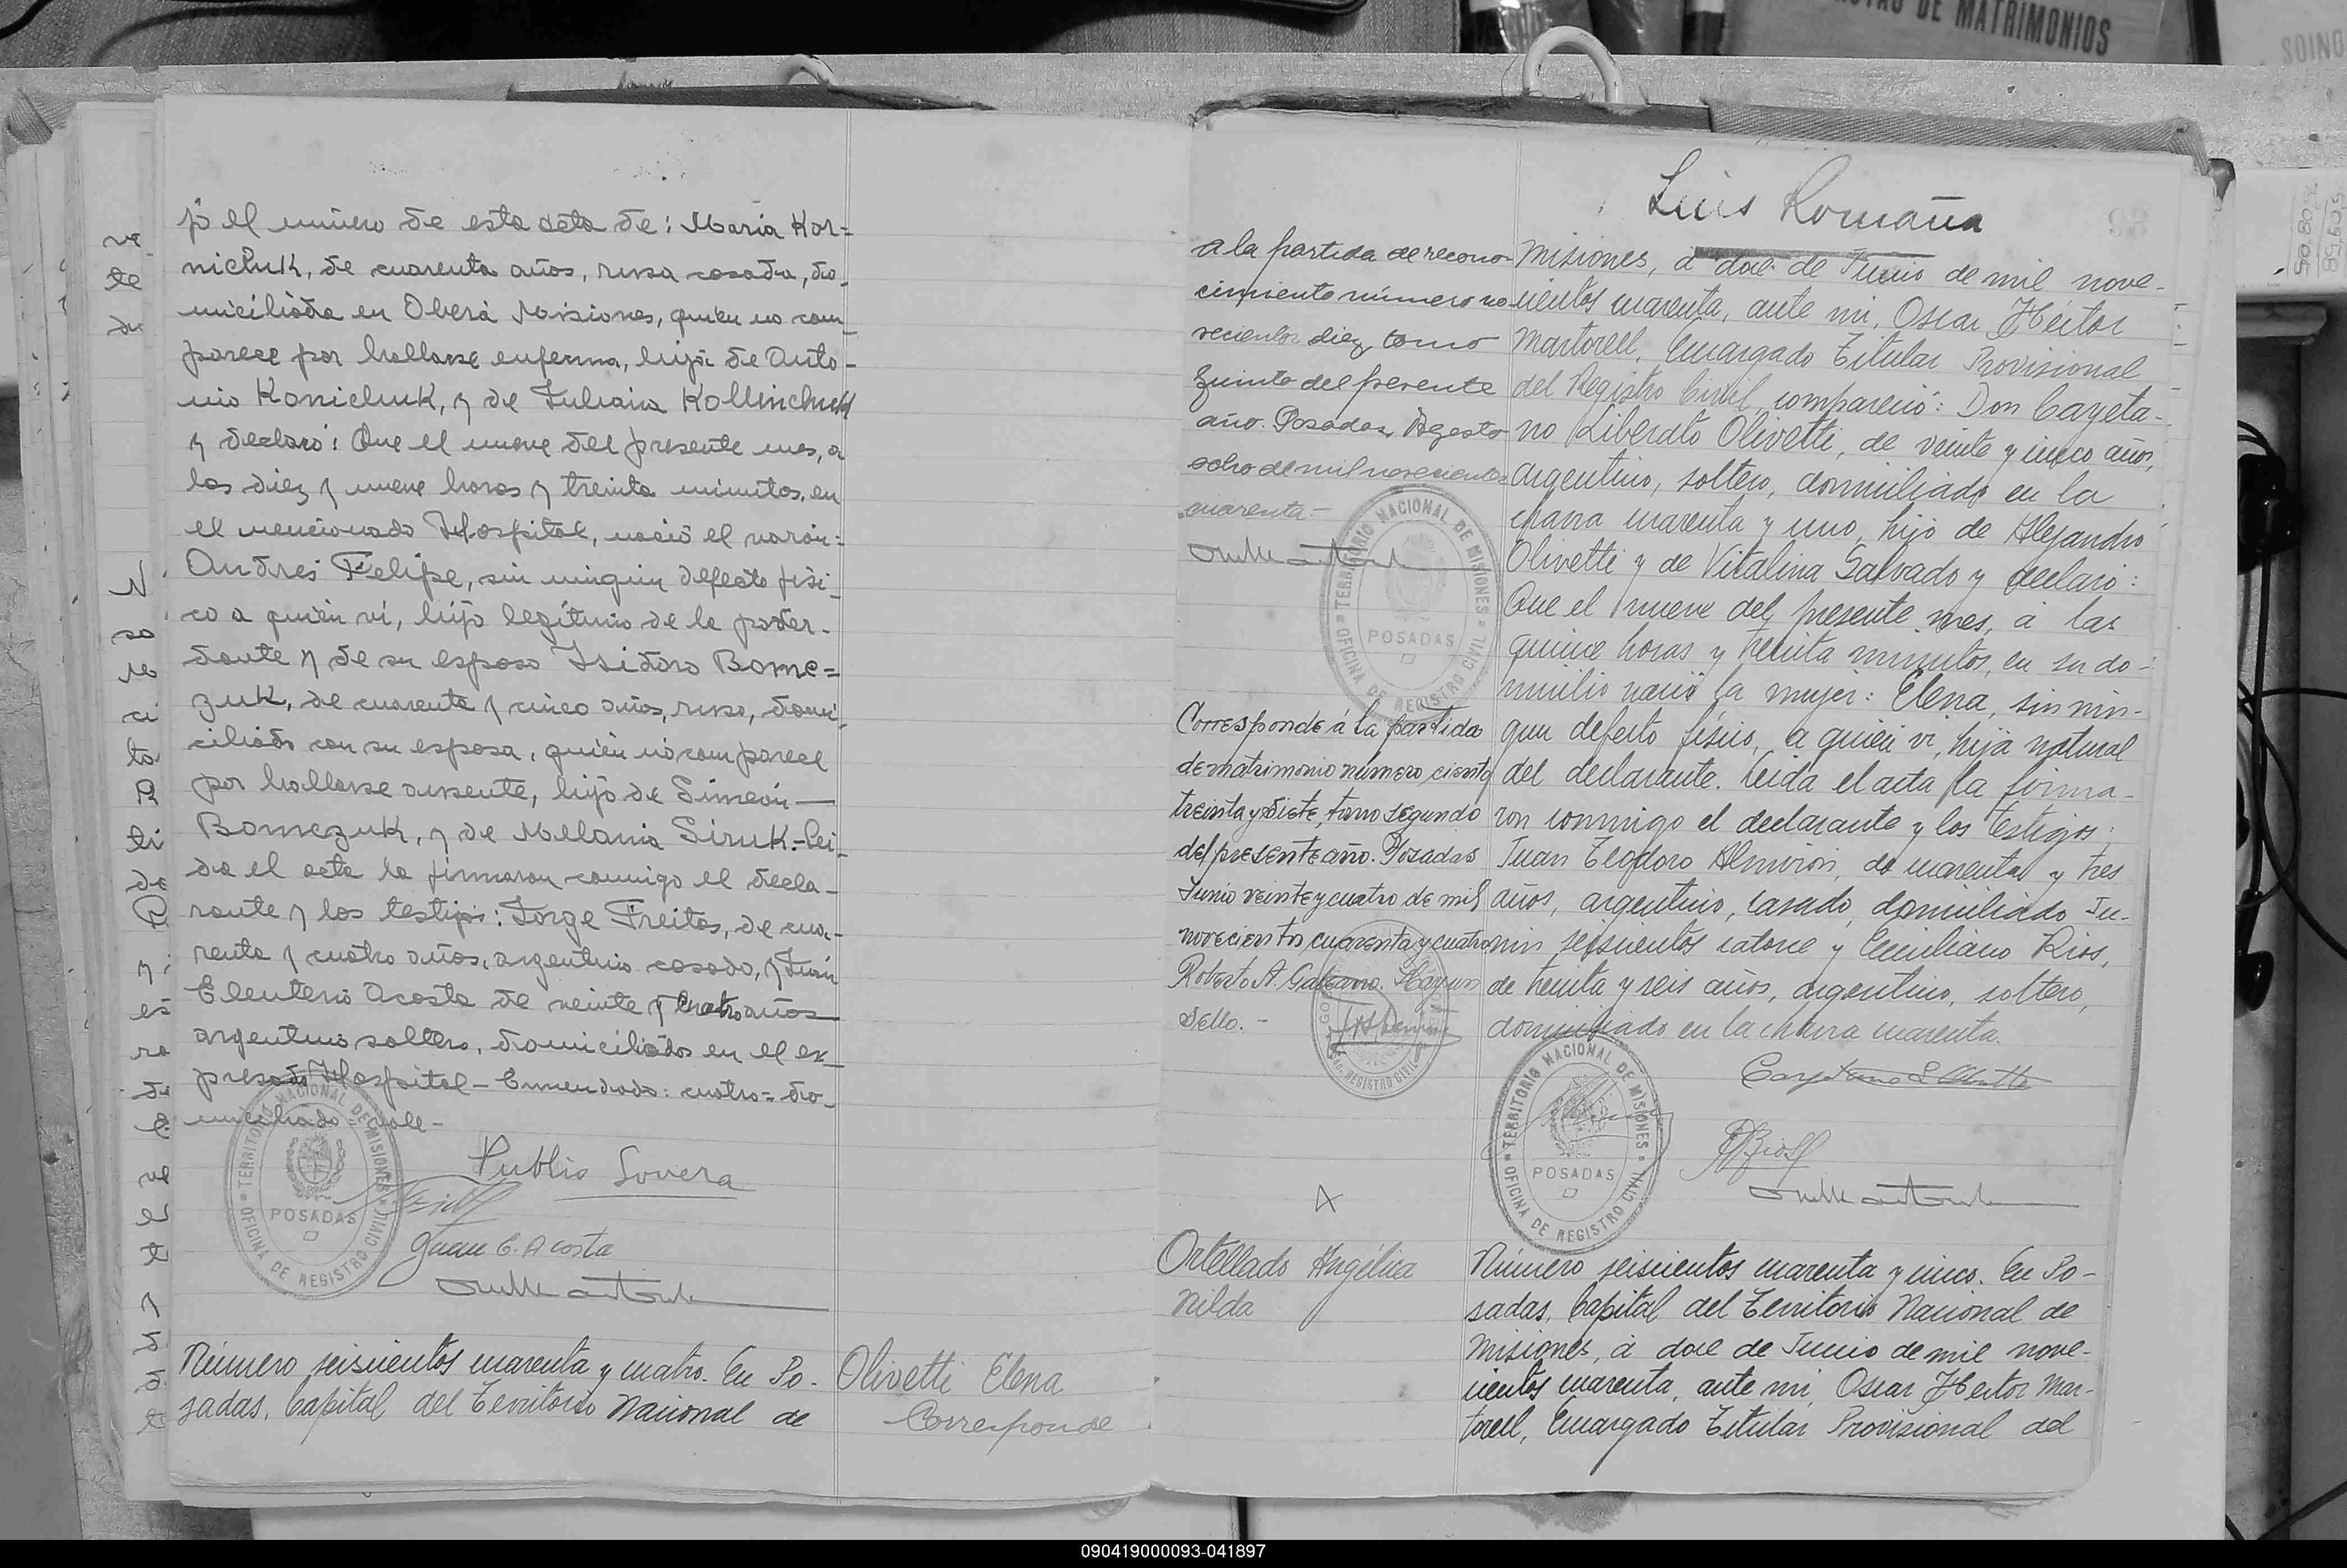 DE MATRIMONIOS
p el número de esta acta de: María Kor=
nichuk, de cuarenta años, rusa casada, do-
miciliada en Oberá Misiones, quien no com-
parece por hallarse enferma, hija de Anto-
nio Konichuk, y de Juliana Kollinchuk
y declaró: Que el nueve del presente mes, a
las diez y nueve horas y treinta minutos, en
el mencionado Hospital, nació el varón:
Andrés Felipe, sin ningún defecto físi-
co a quién ví, hijo legítimo de la poder-
dante y de su esposo Isidoro Bome=
zuk, de cuarenta y cinco años, ruso, domi-
ciliado con su esposa, quién no comparece
por hallarse ausente, hijo de Simeón—
Bomczuk, y de Melania Siruk.-Lei-
da el acta la firmaron conmigo el decla-
rante y los testigos: Jorge Freitas, de cua-
renta y cuatro años, argentino casado, y Juan
Eleuterio Acosta de veinte y cuatro años
argentino soltero, domiciliados en el ex-
presado Hospital - Enmendado: cuatro= do-
miciliado vale-
Publio Lovera
Juan E. Acosta
TERRITORIO NACIONAL DE MISIONES
POSADAS
OFICINA DE REGISTRO CIVIL
Número seiscientos cuarenta y cuatro. En Po-
sadas, Capital del Territorio Nacional de
Olivetti Elena
Corresponde
Luis Romaña
a la partida de recono-
cimiento número no-
vecientos diez, tomo
quinto del presente
año. Posadas, Agosto
ocho de mil novecientos
cuarenta.-
TERRITORIO NACIONAL DE MISIONES
POSADAS
OFICINA DE REGISTRO CIVIL
Corresponde á la partida
de matrimonio numero ciento
treinta y siete, tomo segundo
del presente año. Posadas
Junio veinte y cuatro de mil
novecientos cuarenta y cuatro
Roberto A. Galeano. Hay un
sello.-
REGISTRO CIVIL
Misiones, á doce de Junio de mil nove-
cientos cuarenta, ante mi, Oscar Héctor
Martorell, Encargado Titular Provisional
del Registro Civil, compareció: Don Cayeta-
no Liberato Olivetti, de veinte y cinco años,
argentino, soltero, domiciliado en la
chacra cuarenta y uno, hijo de Alejandro
Olivetti y de Vitalina Salvado y declaró:
Que el nueve del presente mes, á las
quince horas y treinta minutos, en su do-
micilio nació la mujer: Elena, sin nin-
gun defecto físico, a quien vi, hija natural
del declarante. Leida el acta la firma-
ron conmigo el declarante y los testigos:
Juan Teodoro Almirón, de cuarenta y tres
años, argentino, casado, domiciliado Ju-
nin seiscientos catorce y Emiliano Rios,
de treinta y seis años, argentino, soltero,
domiciliado en la chacra cuarenta.
Cayetano L Olivetti
TERRITORIO NACIONAL DE MISIONES
POSADAS
OFICINA DE REGISTRO CIVIL
Ortellado Angélica
Nilda
Número seiscientos cuarenta y cinco. En Po-
sadas, Capital del Territorio Nacional de
Misiones, á doce de Junio de mil nove-
cientos cuarenta, ante mi, Oscar Hector Mar-
torell, Encargado Titular Provisional del
090419000093-041897